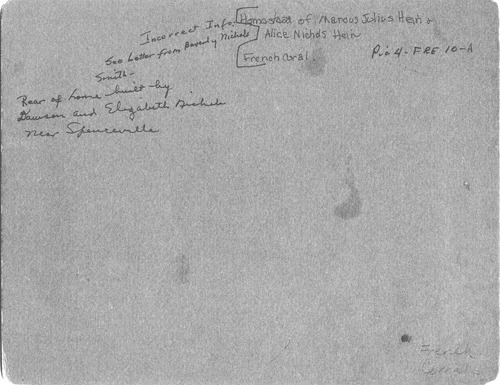 Incorrect Info. [Homestead of Marcus Julius Hein &
Alice Nichols Hein
French Corral.
Pic 4 - FRE 10-A
See Letter from Beverly Nichols
Smith -
Rear of home built by
Dawson and Elizabeth Nichols
near Spenceville
French
Corral